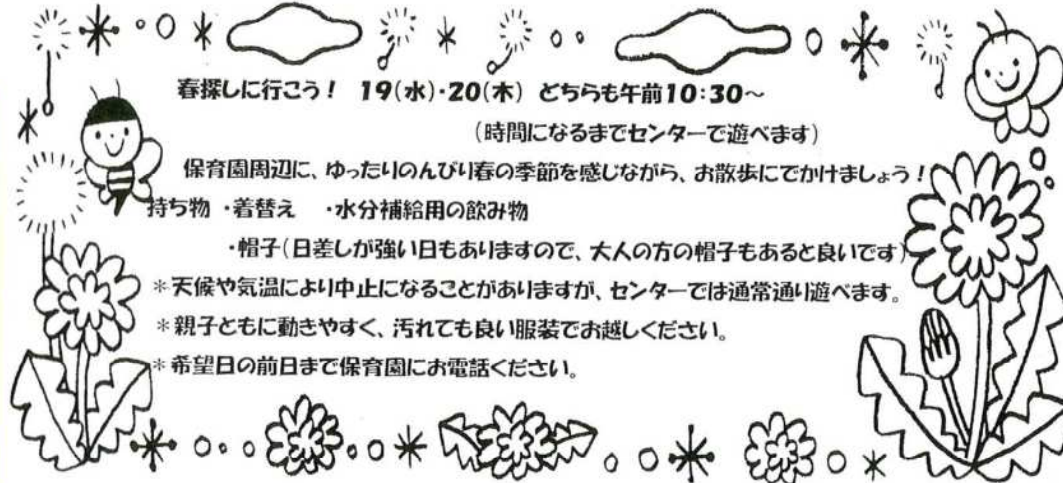 春探しに行こう！ 19(水)・20(木) どちらも午前10:30～
(時間になるまでセンターで遊べます)
保育園周辺に、ゆったりのんびり春の季節を感じながら、お散歩にでかけましょう！
持ち物 ・着替え ・水分補給用の飲み物
・帽子(日差しが強い日もありますので、大人の方の帽子もあると良いです)
＊天候や気温により中止になることがありますが、センターでは通常通り遊べます。
＊親子ともに動きやすく、汚れても良い服装でお越しください。
＊希望日の前日まで保育園にお電話ください。